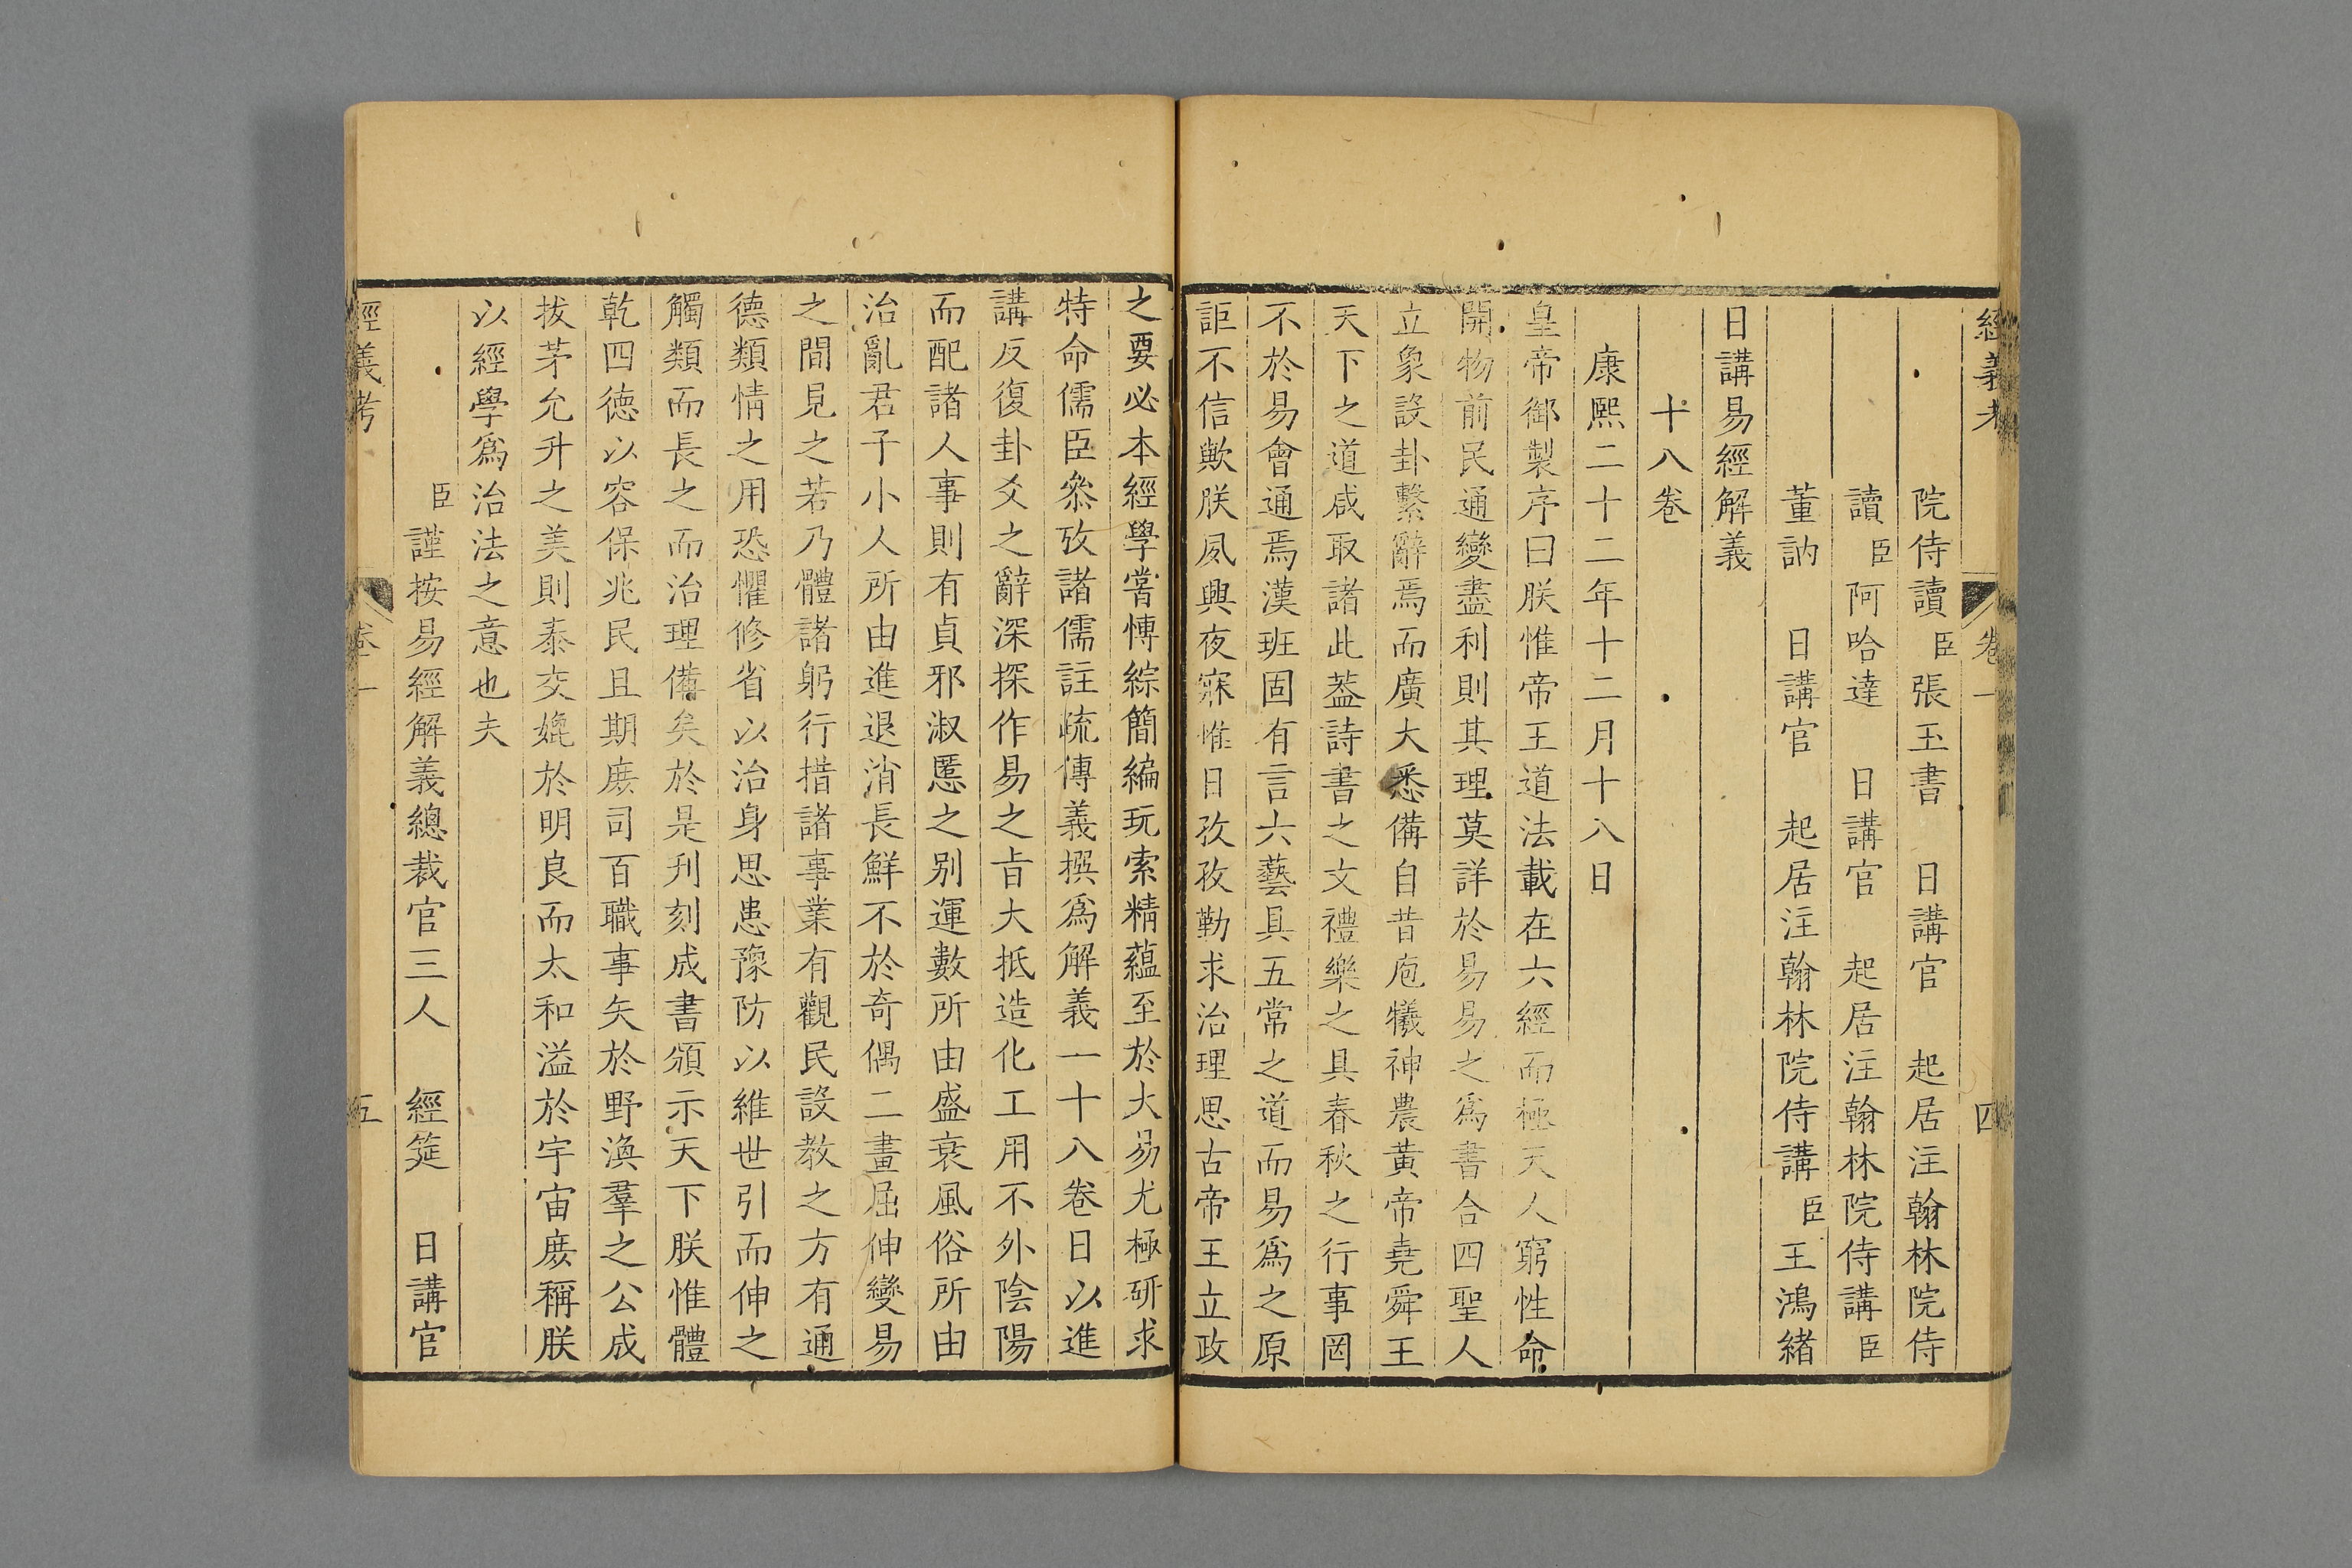 經義考 卷一 四
院侍讀臣張玉書 日講官 起居注翰林院侍
讀臣阿哈達 日講官 起居注翰林院侍講臣
董訥 日講官 起居注翰林院侍講臣王鴻緒
日講易經解義
十八卷
康熙二十二年十二月十八日
皇帝御製序曰朕惟帝王道法載在六經而極天人窮性命
開物前民通變盡利則其理莫詳於易易之爲書合四聖人
立象設卦繫辭焉而廣大悉備自昔庖犧神農黃帝堯舜王
天下之道咸取諸此葢詩書之文禮樂之具春秋之行事罔
不於易會通焉漢班固有言六藝具五常之道而易爲之原
詎不信歟朕夙興夜寐惟日孜孜勤求治理思古帝王立政
之要必本經學嘗愽綜簡編玩索精蘊至於大易尤極研求
特命儒臣叅攷諸儒註疏傳義撰爲解義一十八卷日以進
講反復卦爻之辭深探作易之旨大抵造化工用不外陰陽
而配諸人事則有貞邪淑慝之别運數所由盛衰風俗所由
治亂君子小人所由進退消長鮮不於奇偶二畫屈伸變易
之間見之若乃體諸躬行措諸事業有觀民設教之方有通
德類情之用恐懼修省以治身思患豫防以維世引而伸之
觸類而長之而治理備矣於是刋刻成書頒示天下朕惟體
乾四徳以容保兆民且期庶司百職事矢於野渙羣之公成
拔茅允升之美則泰交媲於明良而太和溢於宇宙庶稱朕
以經學爲治法之意也夫
臣謹按易經解義總裁官三人 經筵 日講官
經義考 卷一 五